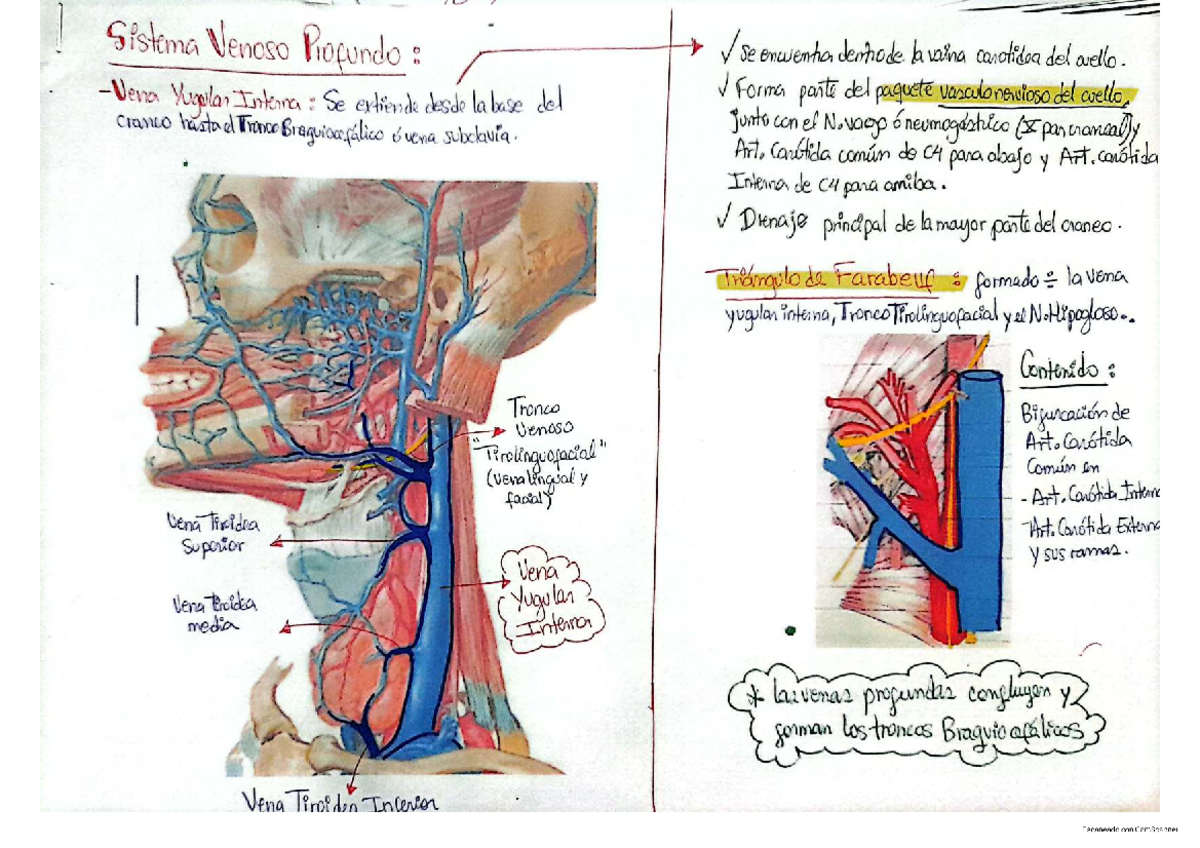 Sistema Venoso Profundo :
- Vena Yugular Interna : Se extiende desde la base del
craneo hasta el Tronco Braquiocefálico ó vena subclavia.
Tronco
Venoso
"Tirolinguofacial"
(vena lingual y
facial)
Vena Tiroidea
Superior
Vena Tiroidea
media
Vena
Yugular
Interna
Vena Tiroidea Inferior
✓ Se encuentra dentro de la vaina carotídea del cuello.
✓ Forma parte del paquete vasculonervioso del cuello,
junto con el N. vago ó neumogástrico (X par craneal) y
Art. Carótida común de C4 para abajo y Art. carótida
Interna de C4 para arriba.
✓ Drenaje principal de la mayor parte del craneo.
Triángulo de Farabeuf : formado ÷ la vena
yugular interna, Tronco Tirolinguofacial y el N. Hipogloso..
Contenido :
Bifurcación de
Art. Carótida
Común en
- Art. Carótida Interna
- Art. Carótida Externa
y sus ramas.
* Las venas profundas confluyen y
forman los troncos Braquiocefálicos
Escaneado con CamScanner